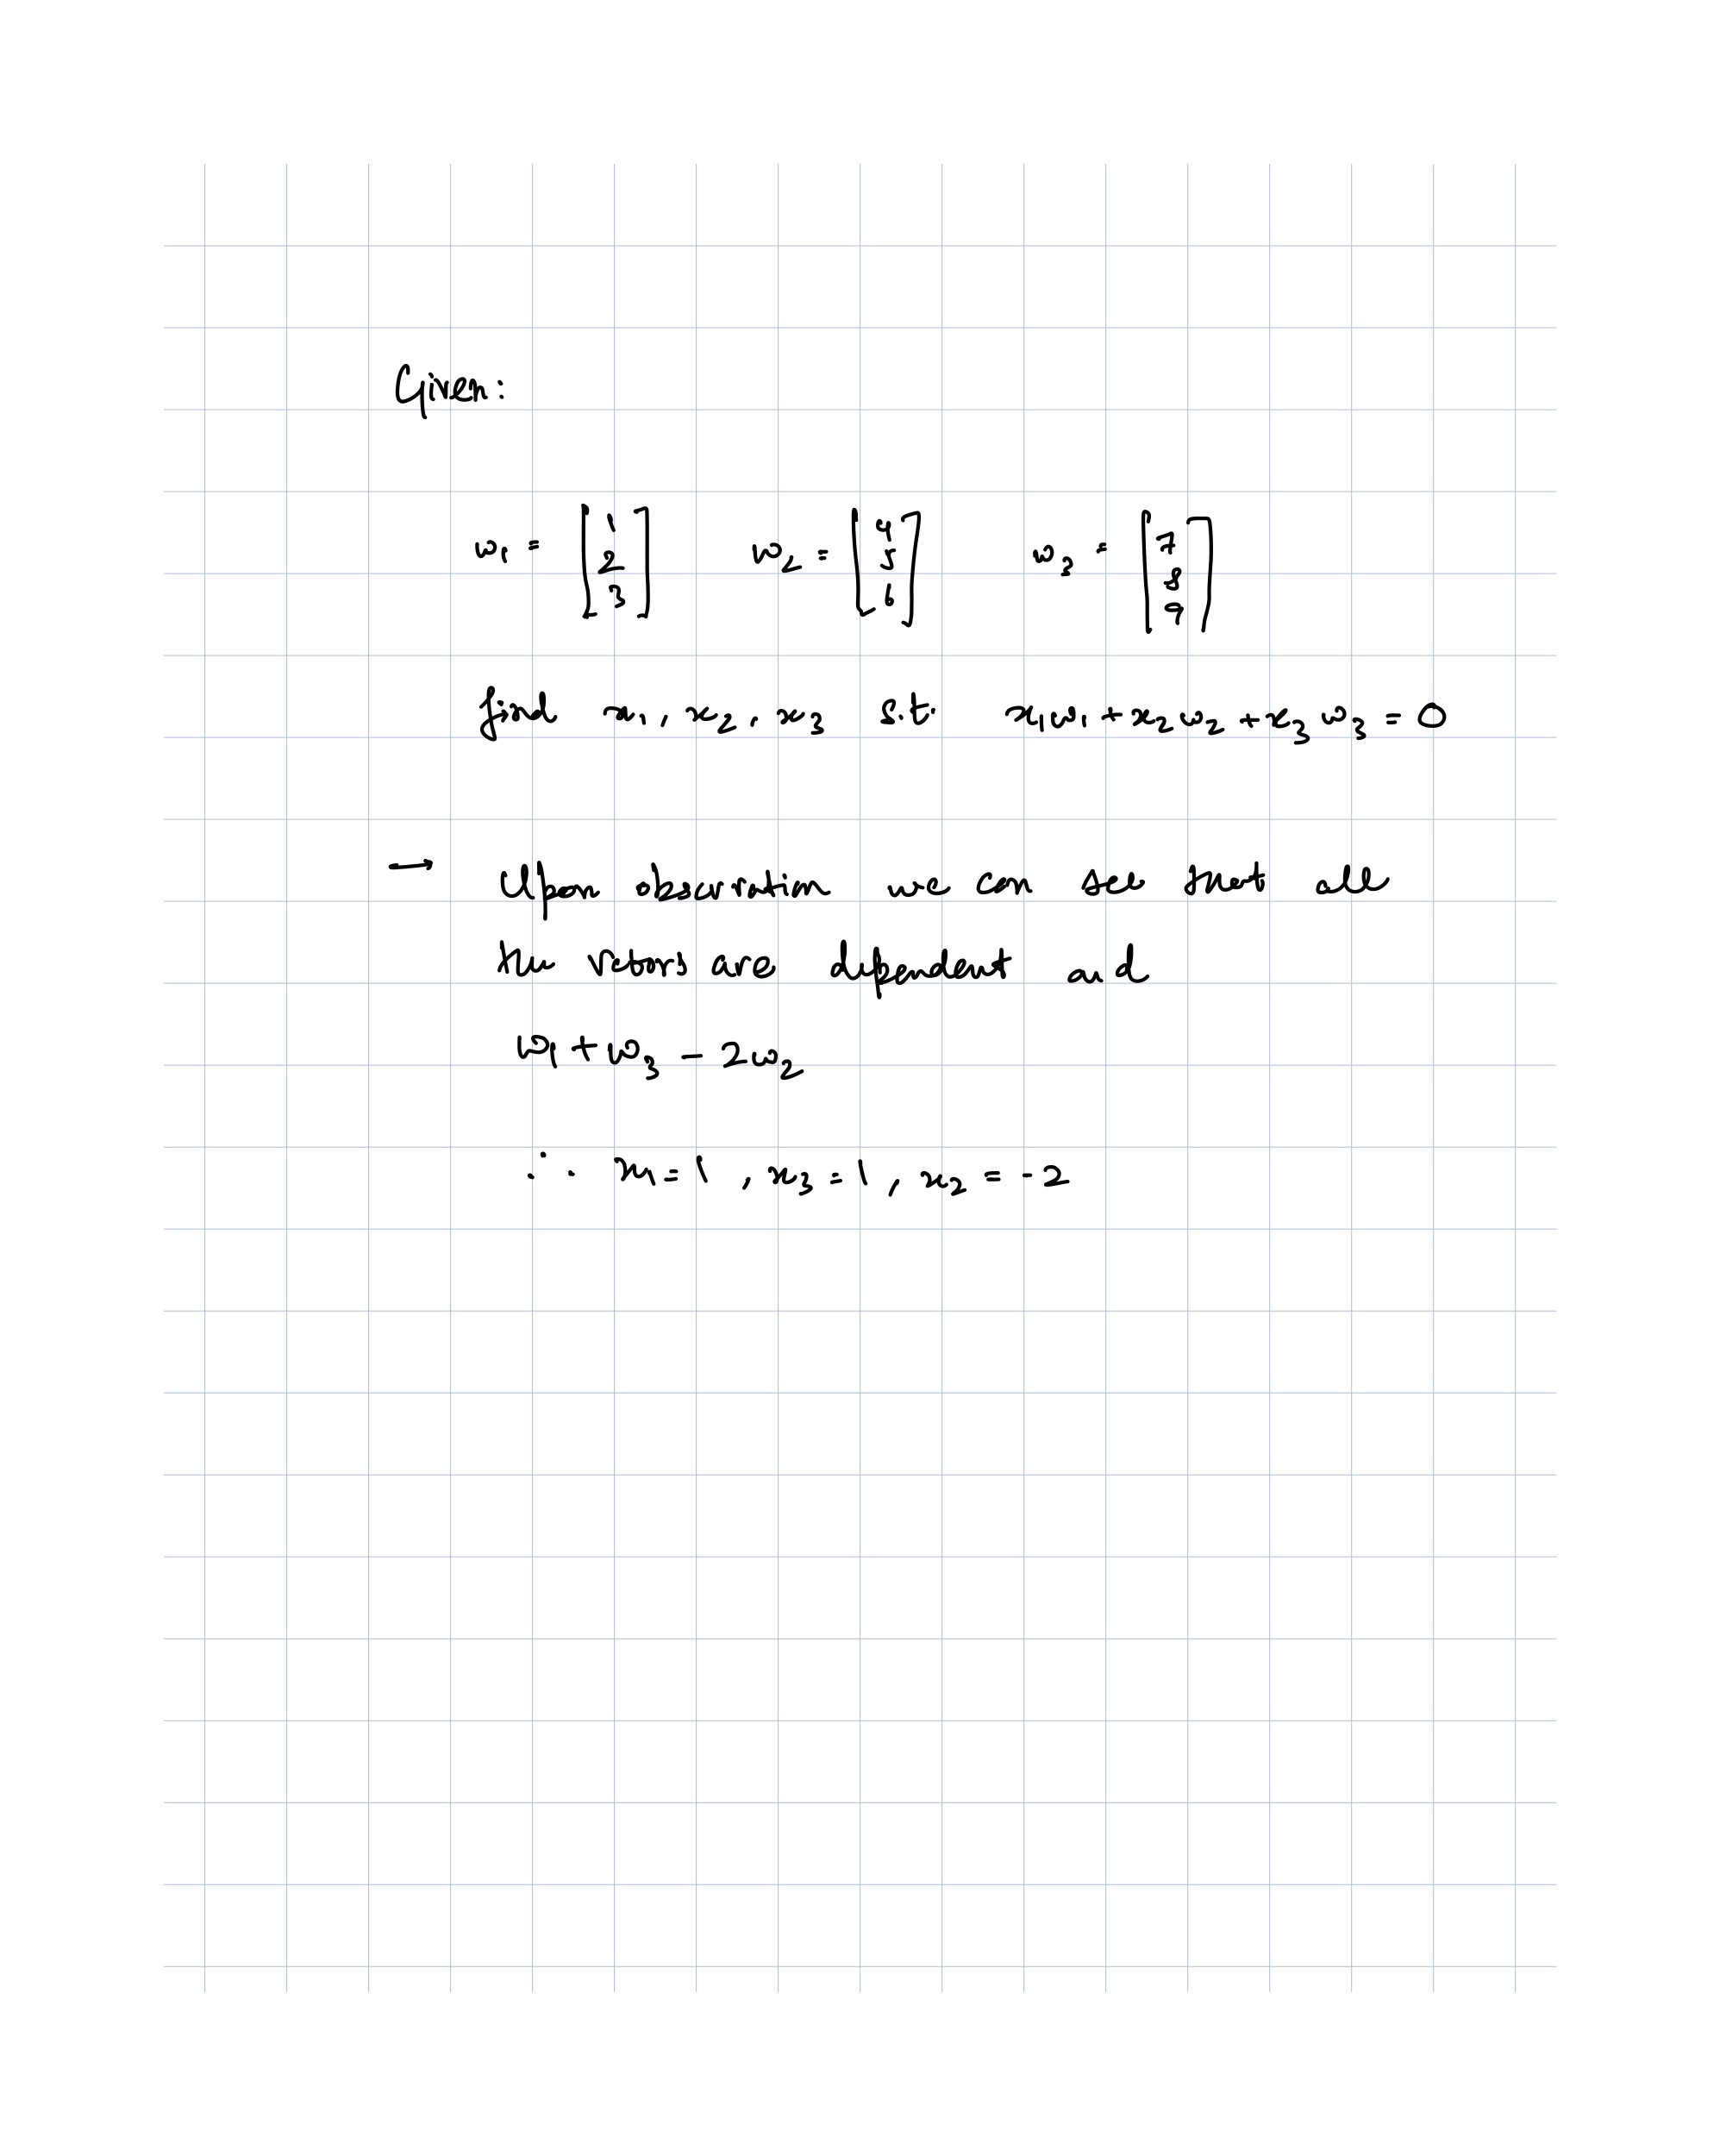 Given:
w₁ = [1 2 3] w₂ = [4 5 6] w₃ = [7 8 9]
find x₁, x₂, x₃ s.t. x₁w₁ + x₂w₂ + x₃w₃ = 0
→ Upon observation we can see that all
the vectors are dependent and
w₁ + w₃ - 2w₂
∴ x₁ = 1, x₃ = 1, x₂ = -2